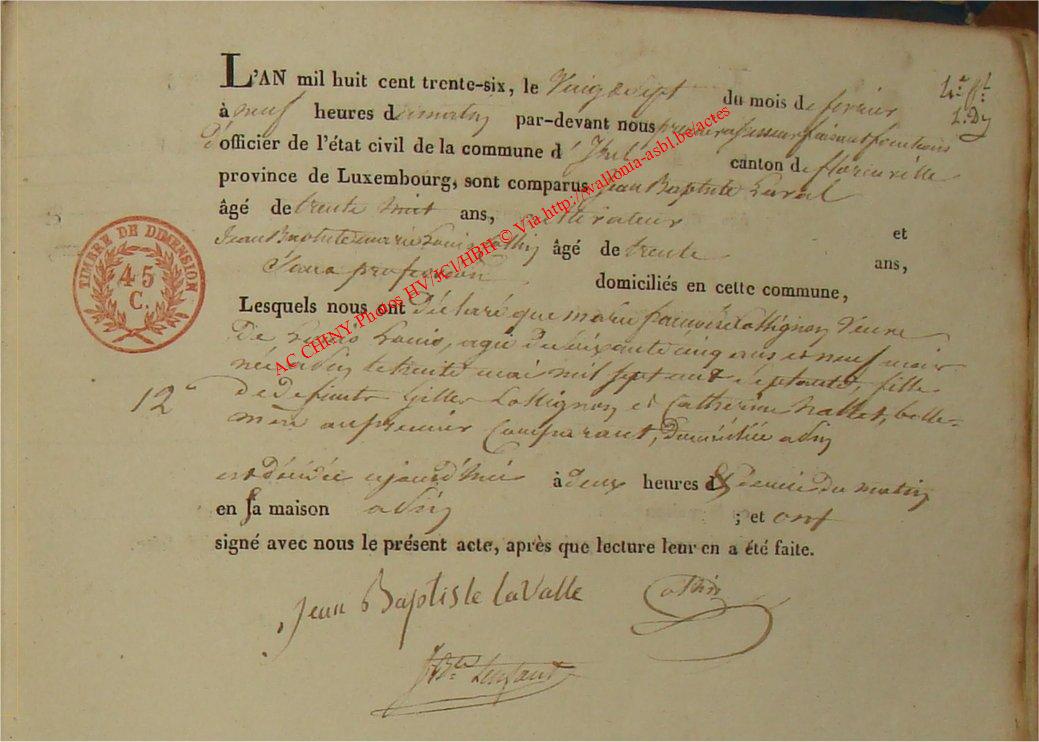 L'AN mil huit cent trente-six, le Vingt sept du mois de fevrier
à neuf heures du matin par-devant nous premier assesseur faisant fonctions
d'officier de l'état civil de la commune d' canton de florenville
province de Luxembourg, sont comparus Jean Baptiste Laval
âgé de trente huit ans, et
Jean Baptiste marie Louis Cathin âgé de trente ans,
Sans profession domiciliés en cette commune,
Lesquels nous ont Déclaré que marie francoise Lottignon Veuve
De Louis, agée de soixante cinq ans et neuf mois
née a le trente mai mil sept cent septante, fille
De defunts Gilles Lottignon et Catherine hallet, belle-
mere au premier Comparant, domiciliée a
est décédée aujourd'hui à deux heures & demie du matin
en sa maison a ; et ont
signé avec nous le présent acte, après que lecture leur en a été faite.
Jean Baptiste laValle
Cathin
Lenfant
TIMBRE DE DIMENSION
45
C.
12
AC CHINY Photos HV/JCl/HBH © Via http://wallonia-asbl.be/actes